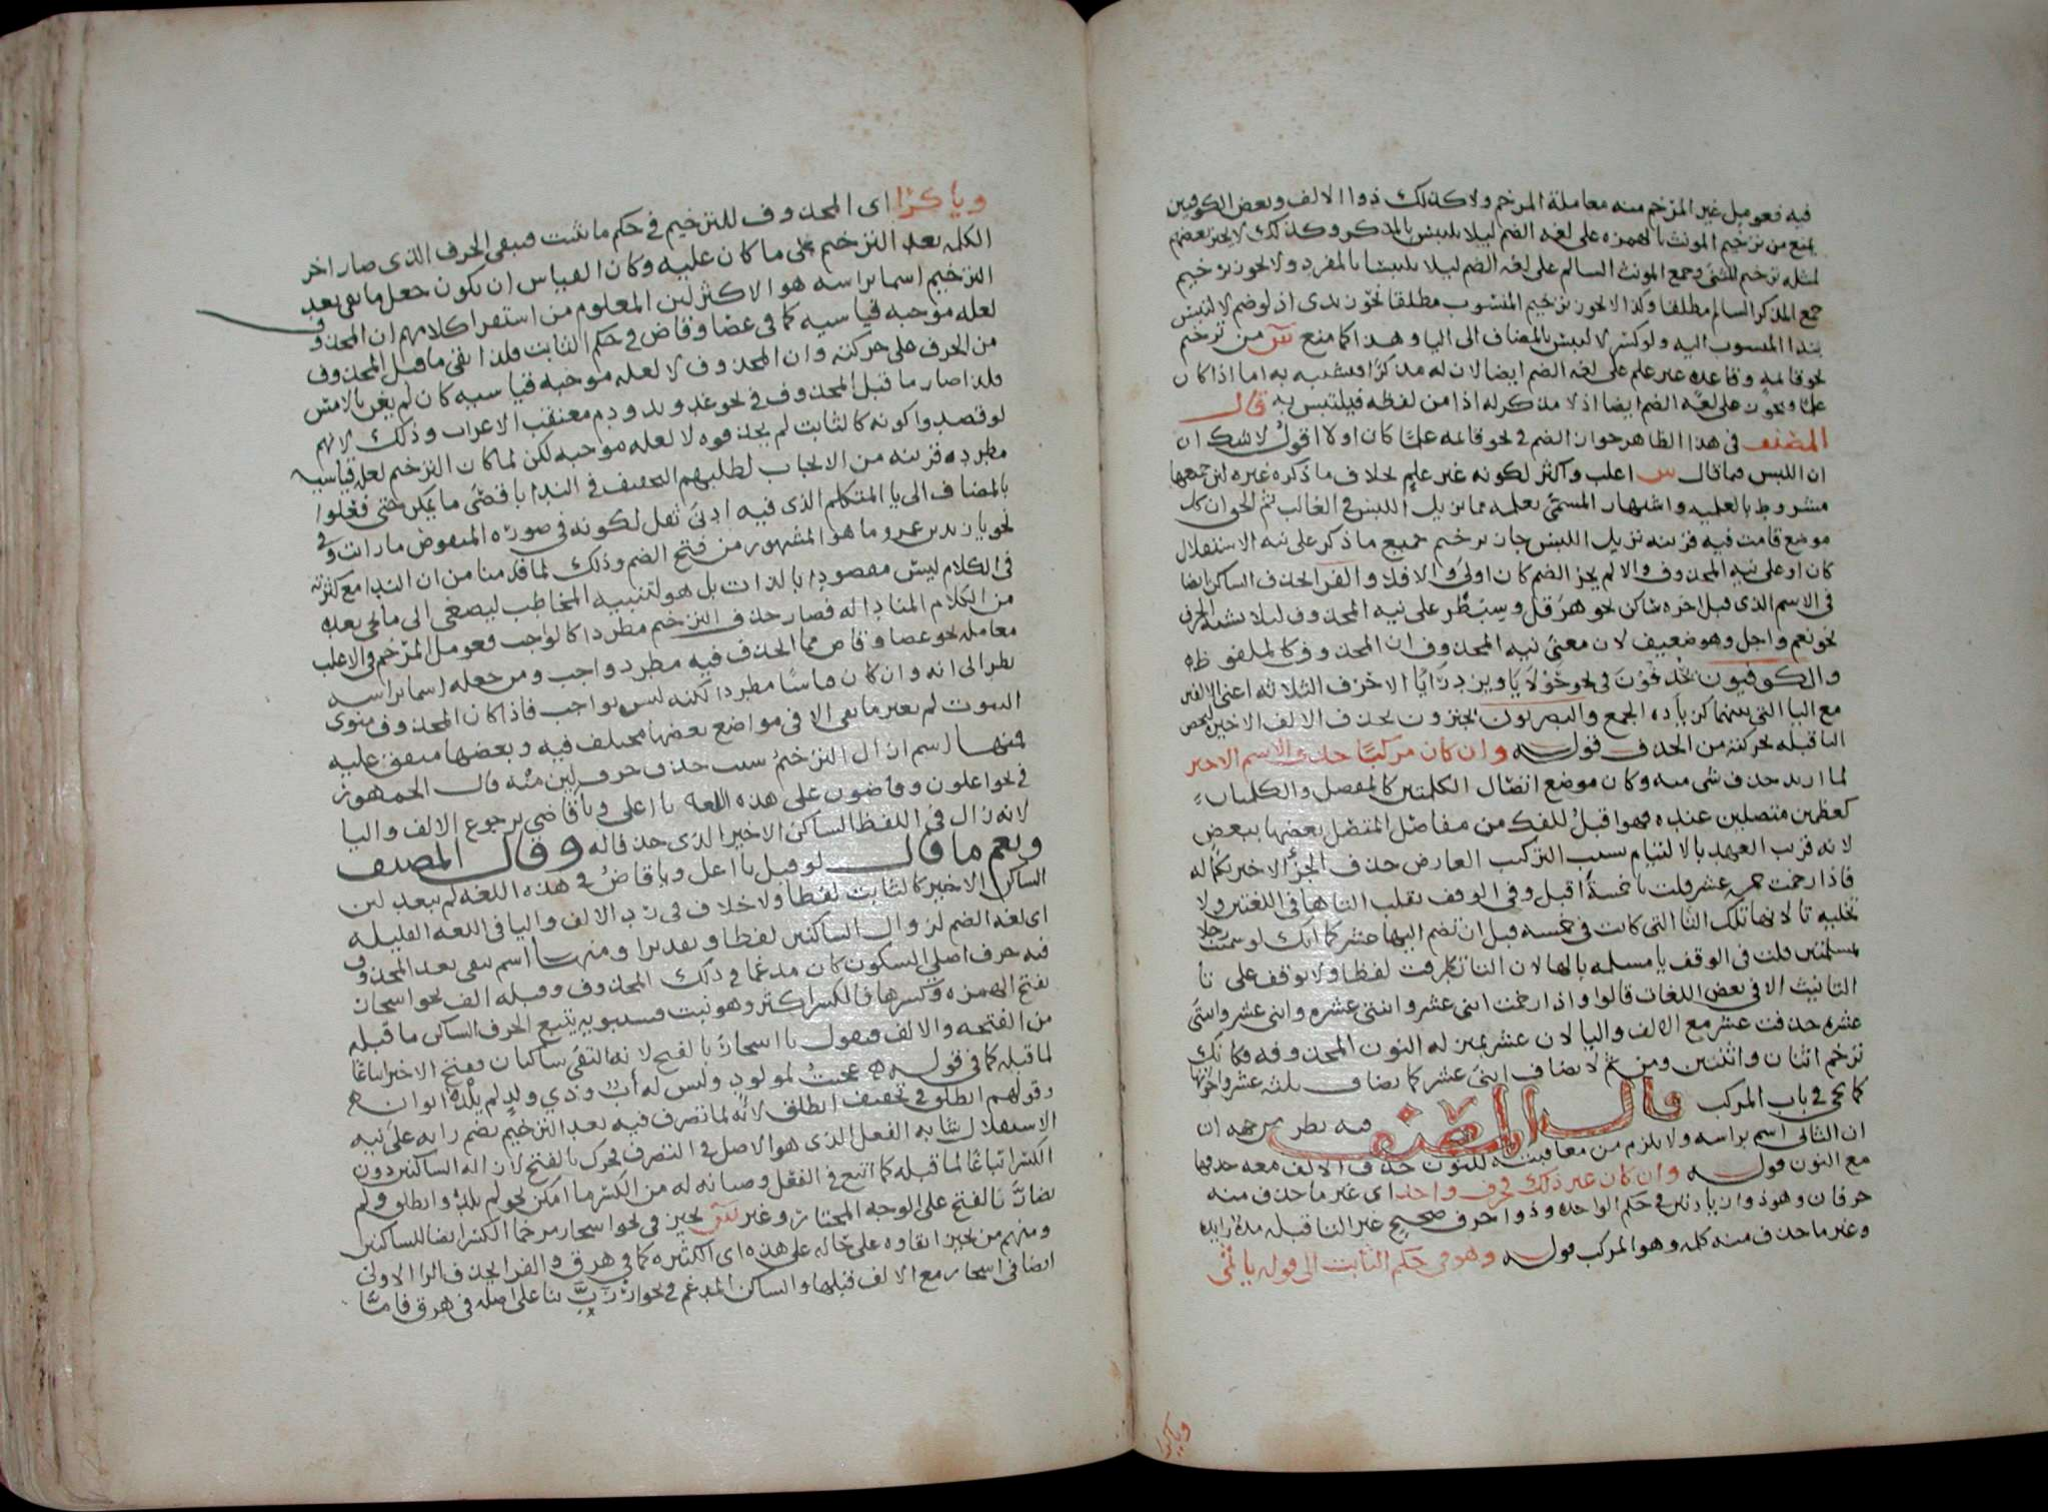 فيه فعومل غير المرخم منه معاملة المرخم ولا كذلك ذوا الالف وبعض الكوفيين
يمنع من ترخيم المونث بالهمزه على لغه الضم ليلا يلتبس بالمذكر وكذلك لا يجيز بعضهم
لمثله ترخيم المثنى وجمع المونث السالم على لغه الضم ليلا يلتبسا بالمفرد ولا يجوز ترخيم
جمع المذكر السالم مطلقا وكذا لا يجوز ترخيم المنسوب مطلقا نحو زيدى اذ لو ضم لالتبس
بندا المنسوب اليه ولو كسر لالتبس بالمضاف الى اليا وهذا كما منع من ترخيم
نحو قايمه وقاعده غير علم على لغه الضم ايضا لان له مذكرا فيشتبه به اما اذا كان
علما فيجوز على لغه الضم ايضا اذ لا مذكر له اذا من لفظه فيلتبس به قال
المصنف فى هذا الظاهر جواز الضم فى نحو قايمه علما كان اولا اقول لا شك ان
ان اللبس فيما قال س اغلب واكثر لكونه غير علم بخلاف ما ذكره غيره لان جمعها
مشروط بالعلميه واشتهار المسمى بعلمه مما يزيل اللبس فى الغالب ثم الحق ان كل
موضع قامت فيه قرينه تزيل اللبس جاز ترخيم جميع ما ذكر على نيه الاستقلال
كان او على نيه المحذوف والا لم يجز الضم كان اولى والا فلا والفرا يحذف الساكن ايضا
فى الاسم الذى قبل اخره ساكن نحو هرقل وسبطر على نيه المحذوف ليلا يشبه الحرف
نحو نعم واجل وهو ضعيف لان معنى نيه المحذوف ان المحذوف كالملفوظ به
والكوفيون يحذفون فى نحو حولايا وبردرايا الاحرف الثلاثه اعنى الالفين
مع اليا التى بينهما كزياده الجمع والبصريون يجيزون بحذف الالف الاخير
اليا قبله بحركته من الحذف قوله وان كان مركبا حذف الاسم الاخير
لما اريد حذف شى منه وكان موضع اتصال الكلمتين كالمفصل والكلمتان
كعظمين متصلين عنده فهو اقبل للفك من مفاصل المتصل بعضها ببعض
لانه قريب العهد بالالتيام بسبب التركيب العارض حذف الجز الاخير بكماله
فاذا رخمت خمسه عشر قلت يا خمسة اقبل وفى الوقف تقلب التا ها فى اللغتين ولا
تخليه تا لانها تلك التا التى كانت فى خمسه قبل ان تضم اليها عشر كما انك لو سميت رجلا
بمسلمتين قلت فى الوقف يا مسلمه بالها لان التا تطرفت لفظا ولا توقف على تا
التانيث الا فى بعض اللغات قالوا واذا رخمت اثنى عشر واثنتى عشره واثنى عشر واثنتى
عشره حذفت عشر مع الالف واليا لان عشر بمنزله النون المحذوفه فكانك
ترخم اثنان واثنتين ومن ثم لا يضاف اثنى عشر كما يضاف ثلثه عشر واخواتها
كما يجى فى باب المركب قال المصنف فيه نظر من جهه ان
ان الثانى اسم براسه ولا يلزم من معاقبته للنون حذف الالف معه حذفها
مع النون قوله وان كان غير ذلك فحرف واحد اى غير ما حذف منه
حرفان وهو ذو زيادتين فى حكم الواحده وذوا حرف صحيح غير التا قبله مده زايده
وغير ما حذف منه كله وهو المركب قوله وهو فى حكم الثابت الى قوله يا ثمى
وياكرا
وياكرا اى المحذوف للترخيم فى حكم ما ثبت فيبقى الحرف الذى صار اخر
الكلمه بعد الترخيم على ما كان عليه وكان القياس ان يكون جعل ما بقى بعد
الترخيم اسما براسه هو الاكثر لان المعلوم من استقرا كلامهم ان المحذوف
لعله موجبه قياسيه كما فى عصا وقاض فى حكم الثابت فلذا بقى ما قبل المحذوف
من الحرف على حركته وان المحذوف لا لعله موجبه قياسيه كان لم يغن بالامس
فلذا صار ما قبل المحذوف فى نحو غد ويد ودم معتقب الاعراب وذلك لانهم
لو قصدوا كونه كالثابت لم يحذفوه لا لعله موجبه لكن لما كان الترخيم لعله قياسيه
مطرده قريبه من الايجاب لطلبهم التخفيف فى الندا باقصى ما يمكن حتى فعلوا
بالمضاف الى يا المتكلم الذى فيه ادنى ثقل لكونه فى صورة المنقوص ما رايت وفى
نحو يا زيد بن عمرو ما هو المشهور من فتح الضم وذلك لما قدمنا من ان الندا مع كثرته
فى الكلام ليس مقصودا بالذات بل هو لتنبيه المخاطب ليصغى الى ما يجى بعده
من الكلام المنادا له فصار حذف الترخيم مطردا كالواجب فعومل المرخم فى الاغلب
معامله نحو عصا وقاض مما الحذف فيه مطرد واجب ومن جعله اسما براسه
نظر الى انه وان كان قياسا مطردا لكنه ليس بواجب فاذا كان المحذوف منوى
الثبوت لم يغير ما بقى الا فى مواضع بعضها مختلف فيه وبعضها متفق عليه
فمنها اسم ازال الترخيم سبب حذف حرف لين منه قال الجمهور
فى نحو اعلون وقاضون على هذه اللغه يا اعلى ويا قاضى برجوع الالف واليا
لانه زال فى اللفظ الساكن الاخير الذى حذفا له وقال المصنف
ونعم ما قال لو قيل يا اعل ويا قاض فى هذه اللغه لم يبعد لان
الساكن الاخير كالثابت لفظا ولا خلاف فى رد الالف واليا فى اللغه القليله
اى لغه الضم لزوال الساكنين لفظا وتقديرا ومنها اسم بقى بعد المحذوف
فيه حرف اصلى السكون كان مدغما فى ذلك المحذوف وقبله الف نحو اسحار
بفتح الهمزه وكسرها فالكسر اكثر وهو نبت فسيبويه يتبع الحرف الساكن ما قبله
من الفتحه والالف فيقول يا اسحار بالفتح لانه التقى ساكنان ففتح الاخير اتباعا
لما قبله كما فى قوله عجبت لمولود وليس له اب وذي ولد لم يلده ابوان
وقولهم انطلق فى تخفيف انطلق لانه لما تصرف فيه بعد الترخيم بضم رايه على نيه
الاستقلال شابه الفعل الذى هو الاصل فى التصرف فحرك بالفتح لازاله الساكنين دون
الكسر اتباعا لما قبله كما اتبع فى الفعل وصيانه له من الكسر ما امكن نحو لم يلده وانطلق ولم
يضار بالفتح على الوجه المختار وغير س يجيز فى نحو اسحار مرخما الكسر ايضا للساكنين
ومنهم من يجيز ابقاوه على حاله على هذه اى الكثيره كما فى هرق والفرا يحذف الرا الاولى
ايضا فى اسحار مع الالف قبلها والساكن المدغم فى نحو ارزب بنا على اصله فى هرق فاما